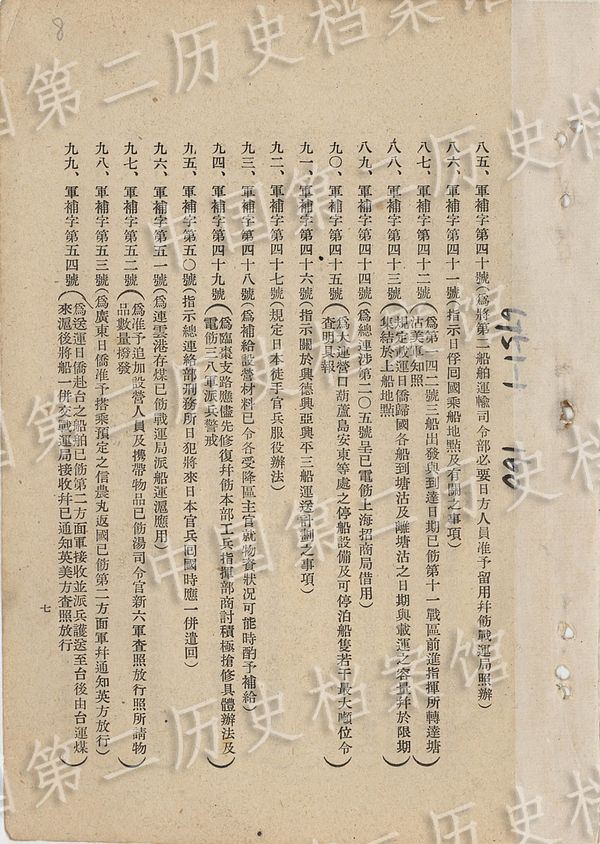 八五、軍補字第四十號（為將第二船舶運輸司令部必要日方人員准予留用幷飭戰運局照辦）
八六、軍補字第四十一號（指示日俘回國乘船地點及有關之事項）
八七、軍補字第四十二號（為第一四二號三船出發與到達日期已飭第十一戰區前進指揮所轉達塘
沽美軍知照）
八八、軍補字第四十三號（規定載運日僑歸國各船到塘沽及離塘沽之日期與載運之容量幷於限期
集結於上船地點）
八九、軍補字第四十四號（為總連涉第二〇五號呈已電飭上海招商局借用）
九〇、軍補字第四十五號（為大連營口葫蘆島安東等處之停船設備及可停泊船隻若干最大噸位令
查明具報）
九一、軍補字第四十六號（指示關於興德興亞興平三船運送計劃之事項）
九二、軍補字第四十七號（規定日本徒手官兵服役辦法）
九三、軍補字第四十八號（為補給設營材料已令各受降區主官就物資狀況可能時酌予補給）
九四、軍補字第四十九號（為臨棗支路應儘先修復幷飭本部工兵指揮部商討積極搶修具體辦法及
電飭三八軍派兵警戒）
九五、軍補字第五〇號（指示總連絡部刑務所日犯將來日本官兵回國時應一併遣回）
九六、軍補字第五一號（為連雲港存煤已飭戰運局派船運滬應用）
九七、軍補字第五二號（為准予追加設營人員及攜帶物品已飭湯司令官新六軍查照放行照所請物
品數量撥發）
九八、軍補字第五三號（為廣東日僑准予搭乘預定之信農丸返國已飭第二方面軍幷通知英方放行）
九九、軍補字第五四號（為送運日僑赴台之船舶已飭第二方面軍接收並派兵護送至台後由台運煤
來滬後將船一併交戰運局接收幷已通知英美方查照放行）
七
8
中国第二历史档案馆
中国第二历史档案馆
中国第二历史档案馆